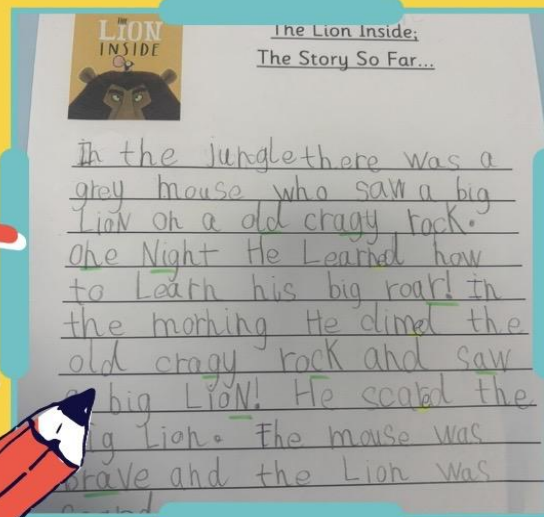 THE
LION
INSIDE
The Lion Inside;
The Story So Far...
In the jungle there was a
grey mouse who saw a big
LioN on a old cragy rock.
One Night He Learned how
to Learn his big roar! In
the morning He climed the
old cragy rock and saw
big LioN! He scared the
Lion. The mouse was
brave and the Lion was